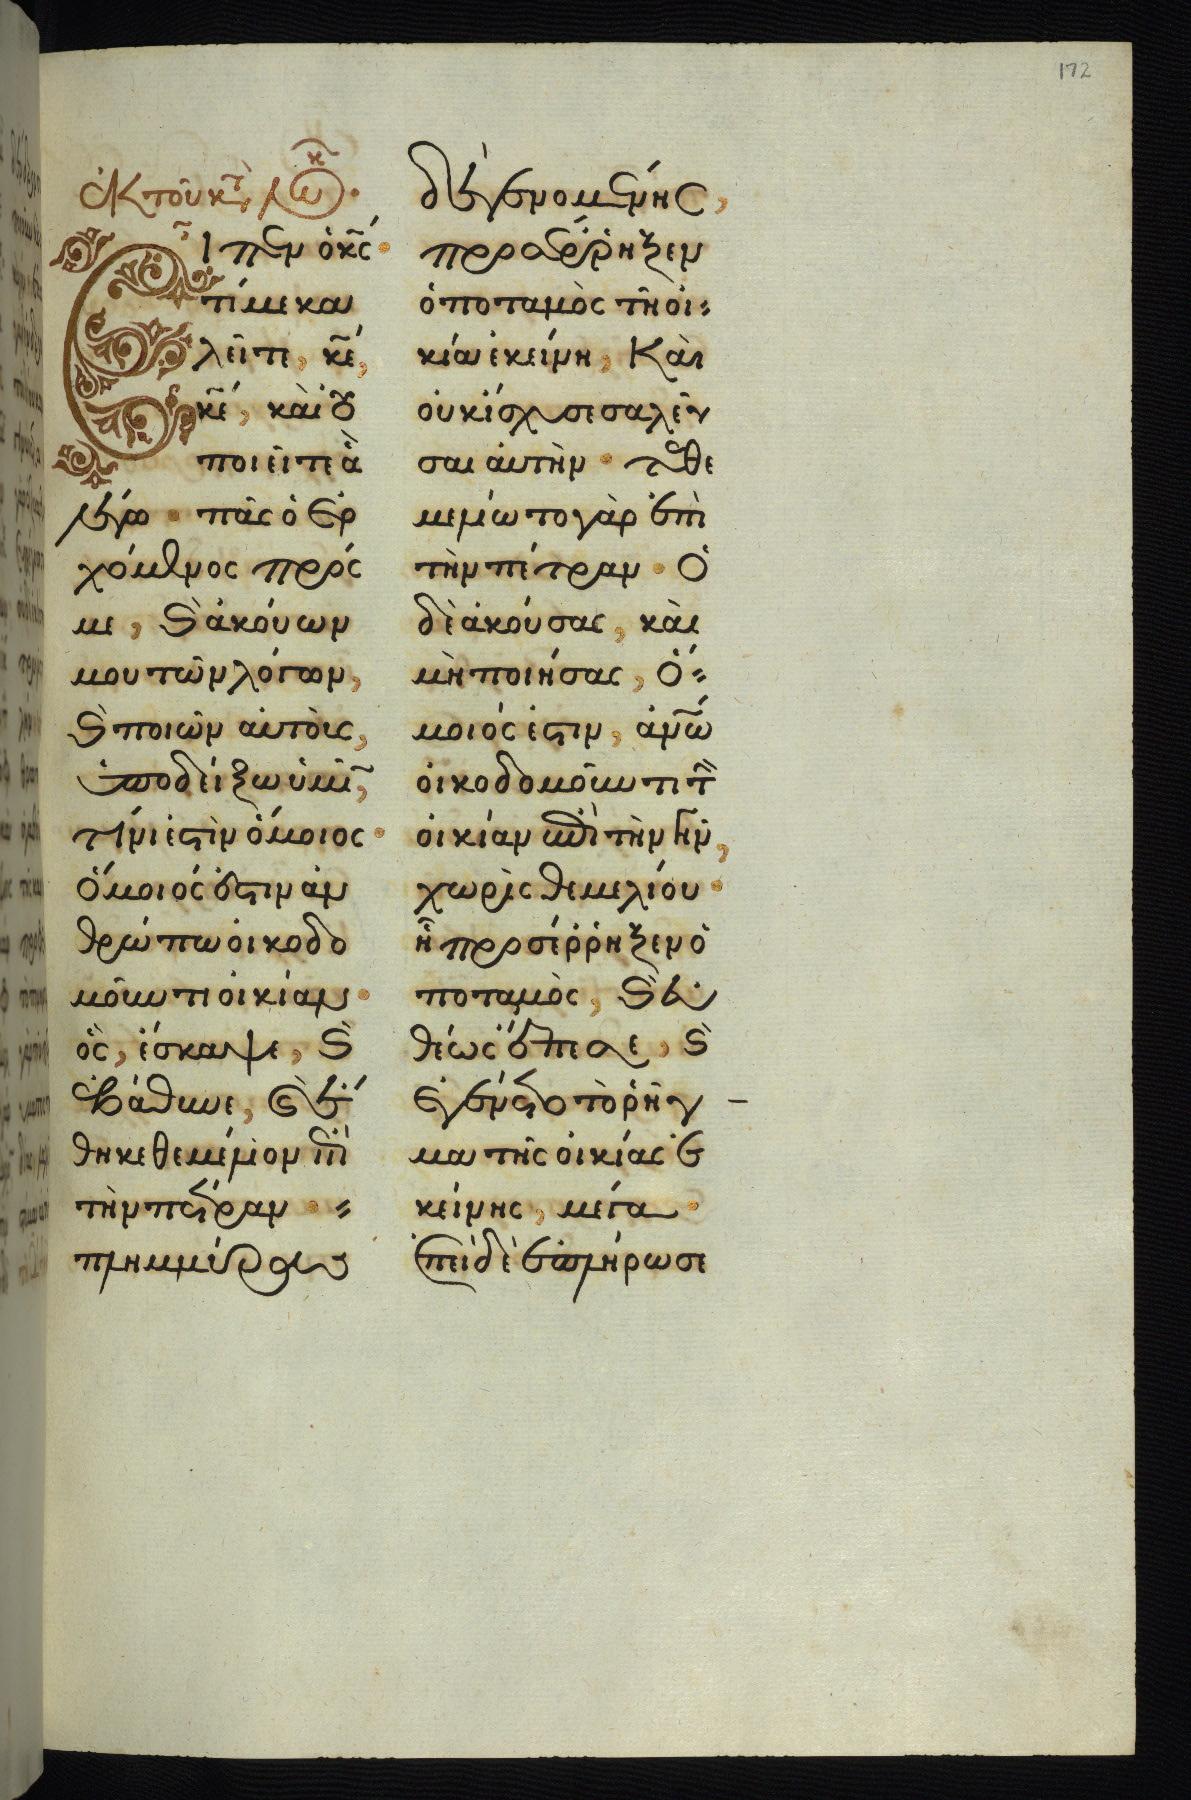 172
ἐκ τοῦ κτ λουκ.
Εἶπεν ὁ κς·
τί με κα
λεῖτε, κε,
κε, καὶ οὐ
ποιεῖτε ἃ
λέγω· πᾶς ὁ ἐρ
χόμενος πρός
με, καὶ ἀκούων
μου τῶν λόγων,
καὶ ποιῶν αὐτοὺς,
ὑποδείξω ὑμῖν,
τίνι ἐστὶν ὅμοιος·
ὅμοιός ἐστιν ἀν
θρώπω οἰκοδο
μοῦντι οἰκίαν·
ὃς, ἔσκαψε, καὶ
ἐβάθυνε, καὶ ἔ
θηκε θεμέλιον ἐπὶ
τὴν πέτραν· =
πλημμύρας
δὲ γενομένης,
προσέρρηξεν
ὁ ποταμὸς τῆ οἰ=
κία ἐκείνη, Καὶ
οὐκ ἴσχυσε σαλεῦ
σαι αὐτήν· τεθε
μελίωτο γὰρ ἐπὶ
τὴν πέτραν· Ὁ
δὲ ἀκούσας, καὶ
μὴ ποιήσας, Ὅ=
μοιός ἐστιν, ἀνω
οἰκοδομοῦντι τὴν
οἰκίαν ἐπὶ τὴν γῆν,
χωρὶς θεμελίου·
ἧ προσέρρηξεν ὁ
ποταμὸς, καὶ εὐ
θέως ἔπεσε, καὶ
ἐγένετο τὸ ῥῆγ –
μα τῆς οἰκίας ἐ
κείνης, μέγα·
ἐπεὶ δὲ ἐπλήρωσε